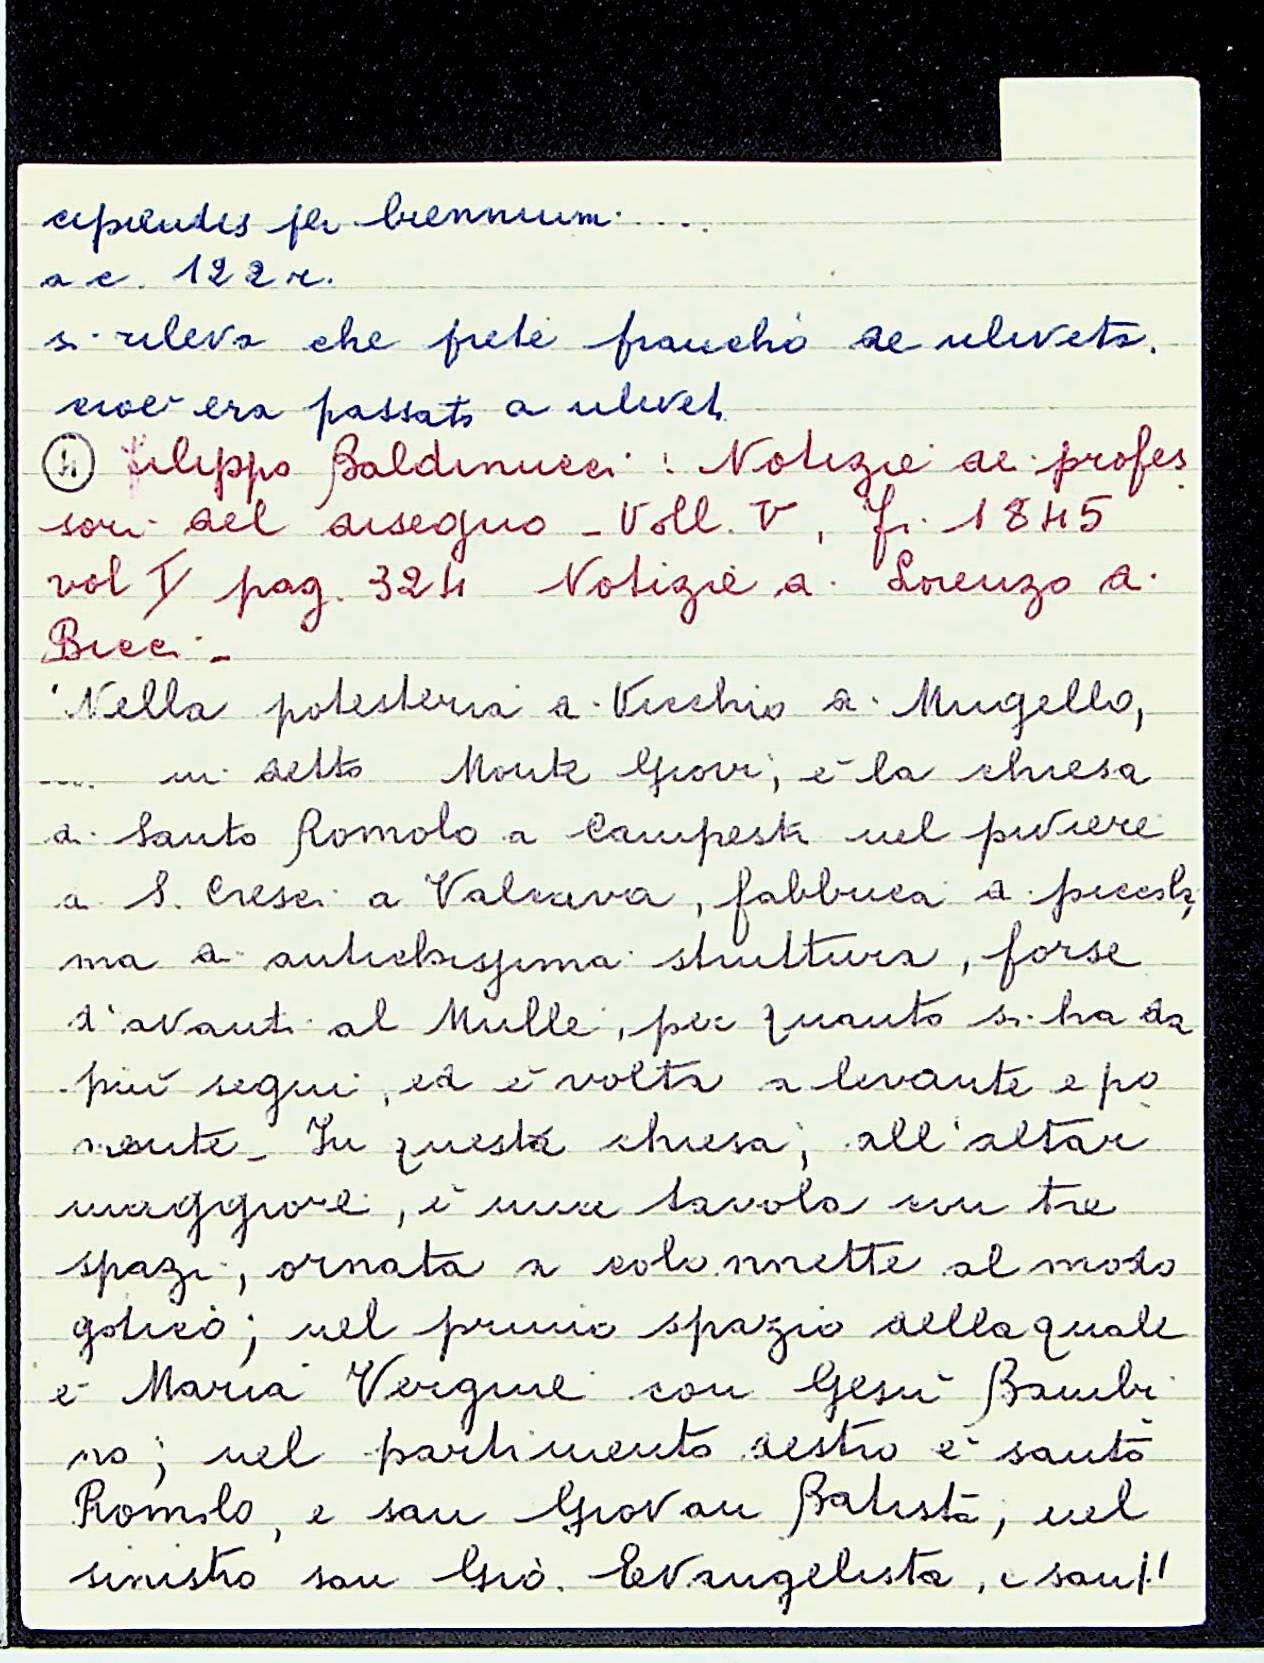 cipiendis per biennium. ...
a c. 122 r.
si rileva che frete francho de uliveta.
cioè era passato a ulivet.
④ Filippo Baldinucci: Notizie dei profes
sori del disegno - Voll. V, Fi. 1845
vol I pag. 324 Notizie di Lorenzo di
Bicci -
"Nella potesteria di Vicchio di Mugello,
.... in detto Monte Giovi, è la chiesa
di Santo Romolo a Campesti nel piviere
di S. Cresci a Valcava, fabbrica di piccola,
ma di antichissima struttura, forse
d'avanti al Mille, per quanto si ha da
più segni, ed è volta a levante e po
nente - In questa chiesa, all'altar
maggiore, è una tavola con tre
spazi, ornata a colonnette al modo
gotico; nel primo spazio della quale
è Maria Vergine con Gesù Bambi
no; nel partimento destro è santo
Romolo, e san Giovan Batista, nel
sinistro san Gio. Evangelista, e san